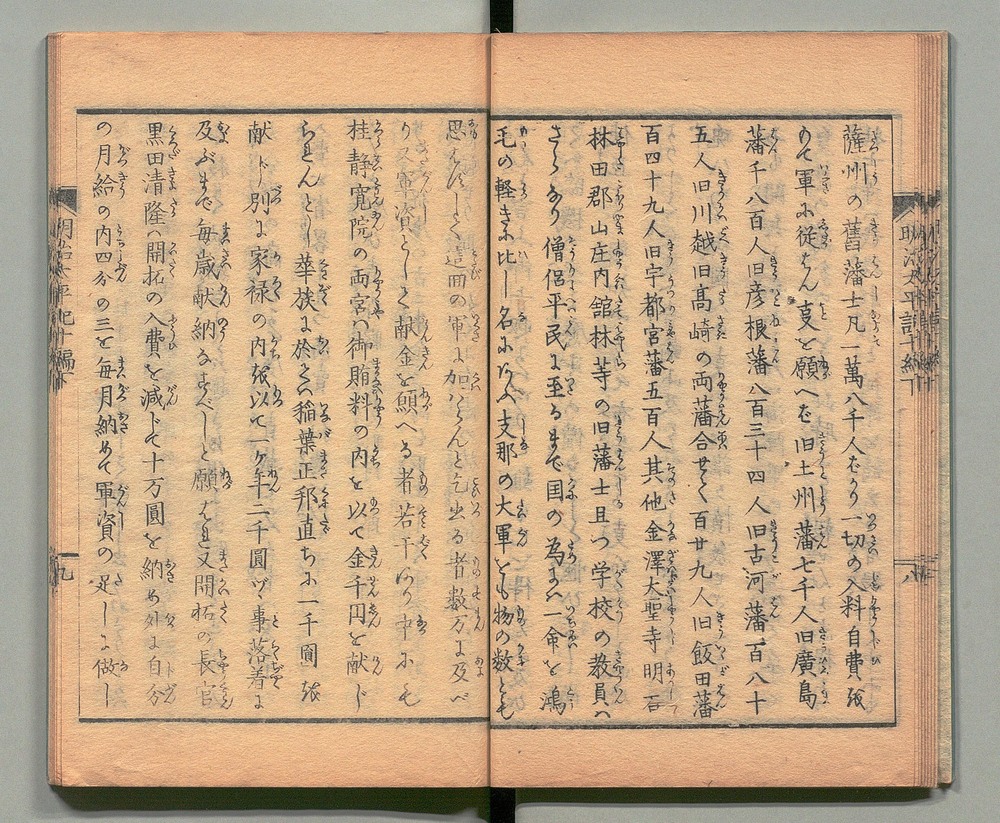 薩州の舊藩士凡一萬八千人ばかり一切の入料自費を
以て軍に従はん㕝を願へば旧土州藩七千人旧廣島
藩千八百人旧彦根藩八百三十四人旧古河藩一百八十
五人旧川越旧髙崎の両藩合せて百廿九人旧飯田藩
百四十九人旧宇都宮藩五百人其他金澤大聖寺明石
林田郡山庄内舘林等の旧藩士且つ学校の教員ハ
さらなり僧侶平民に至るまで国の為にハ一命を鴻
毛の軽きに比し名に次ふ支那の大軍をも物の数とも
思はずして這回の軍に加はらんと乞出る者数万に及べ
り又軍資として献金を願へる者若干あり中にも
桂静寛院の両宮ハ御賄料の内を以て金千円を献じ
られんとし華族に於てハ稲葉正邦直ちに一千圓を
献じ別に家禄の内を以て一ヶ年二千圓づゝ事落着に
及ぶまで毎歳献納なすべしと願はれ又開拓の長官
黒田清隆ハ開拓の入費を減じて十万圓を納め外に自分
の月給の内四分の三を毎月納めて軍資の足しに做し
明治太平記十編下
八
明治太平記十編下
九